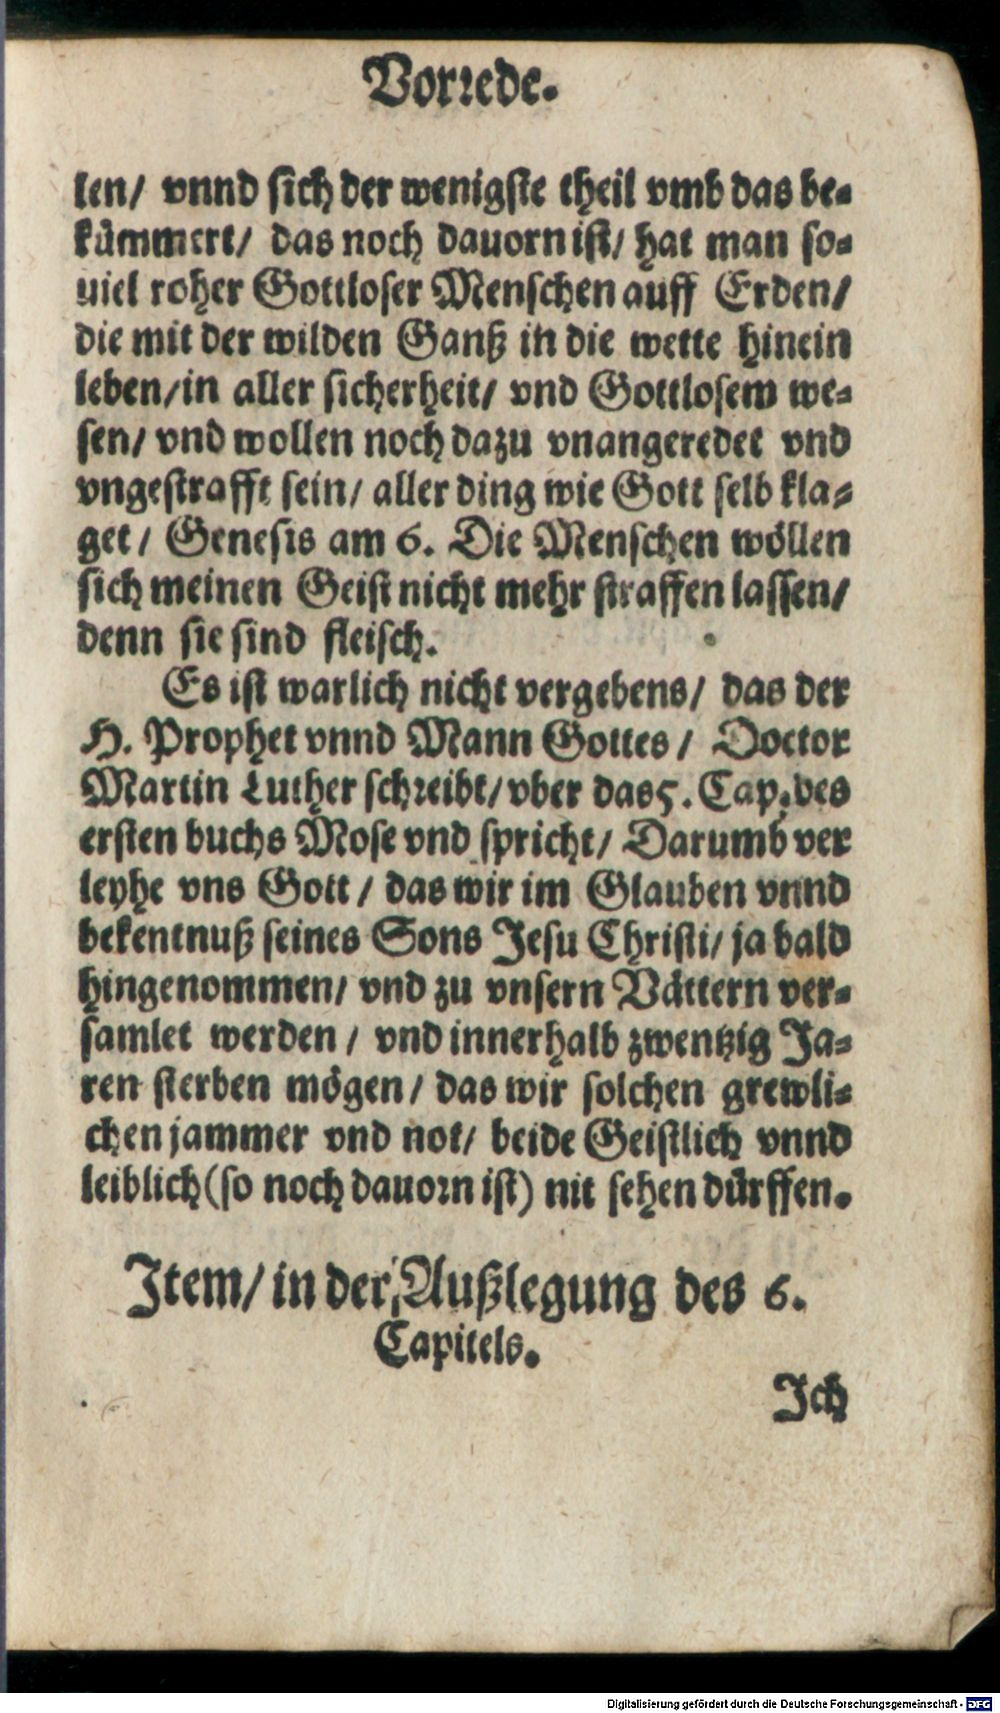 Vorrede.
len/ vnnd sich der wenigste theil vmb das be-
kümmert/ das noch dauorn ist/ hat man so-
uiel roher Gottloser Menschen auff Erden/
die mit der wilden Ganß in die wette hinein
leben/in aller sicherheit/ vnd Gottlosem we-
sen/ vnd wollen noch dazu vnangeredet vnd
vngestrafft sein/ aller ding wie Gott selb kla-
get/ Genesis am 6. Die Menschen wöllen
sich meinen Geist nicht mehr straffen lassen/
denn sie sind fleisch.
Es ist warlich nicht vergebens/ das der
H. Prophet vnnd Mann Gottes/ Doctor
Martin Luther schreibt/vber das 5. Cap. des
ersten buchs Mose vnd spricht/ Darumb ver
leyhe vns Gott/ das wir im Glauben vnnd
bekentnuß seines Sons Jesu Christi/ ja bald
hingenommen/ vnd zu vnsern Vättern ver-
samlet werden/ vnd innerhalb zwentzig Ja-
ren sterben mögen/ das wir solchen grewli-
chen jammer vnd not/ beide Geistlich vnnd
leiblich (so noch dauorn ist) nit sehen dürffen.
Item/ in der Außlegung des 6.
Capitels.
Ich
Digitalisierung gefördert durch die Deutsche Forschungsgemeinschaft - DFG